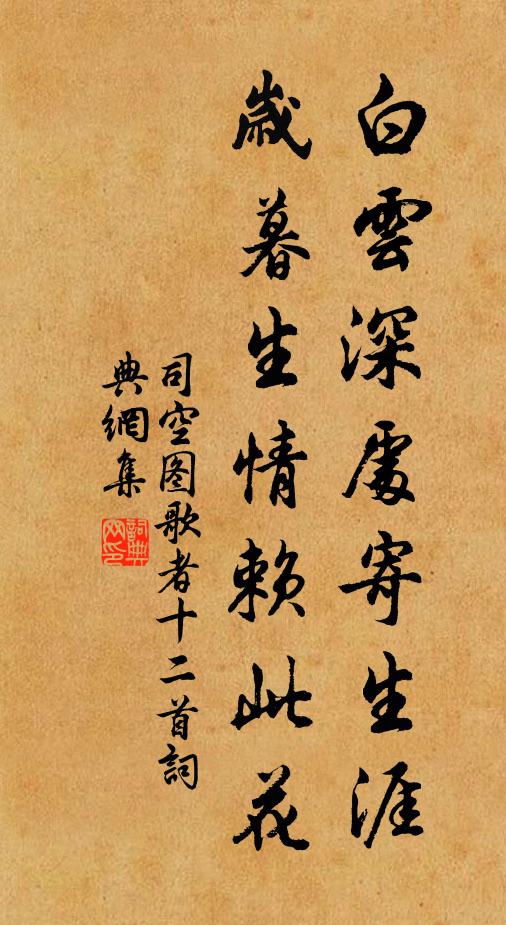 白雲深處寄生涯
歲暮生情賴此花
司空图歌者十二首詞
典網集
詞典
网印